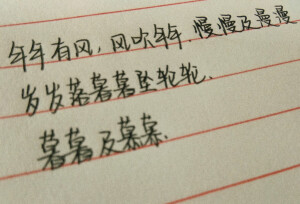 年年有风,风吹年年.慢慢及漫漫
岁岁落暮暮坠轮轮.
暮暮及慕慕.